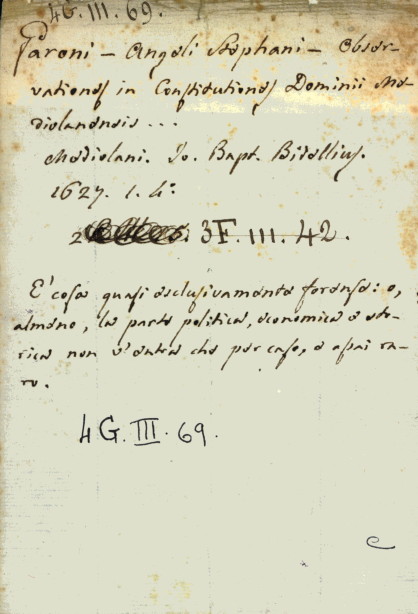 4G. III. 69.
Garoni - Angeli Stephani - Obser-
vationes in Constitutiones Dominii Me-
diolanensis ...
Mediolani. Jo. Bapt. Bidellius.
1627. 1. 4°.
2 3F. III. 42.
E' cosa quasi esclusivamente forense: o,
almeno, la parte politica, economica e sto-
rica non v'entra che per caso, e assai ra-
ro.
4G. III. 69.
c